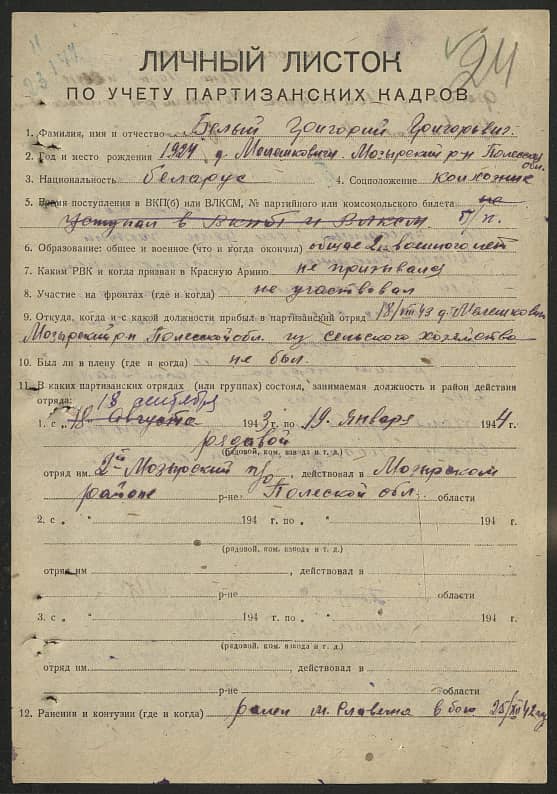 24
ЛИЧНЫЙ ЛИСТОК
ПО УЧЕТУ ПАРТИЗАНСКИХ КАДРОВ
1. Фамилия, имя и отчество Белый Григорий Григорьевич.
2. Год и место рождения 1924 д. Мелешковичи Мозырский р-н Полесская обл.
3. Национальность беларус 4. Соцположение колхозник
5. Время поступления в ВКП(б) или ВЛКСМ, № партийного или комсомольского билета не
б/п.
6. Образование: общее и военное (что и когда окончил) общее 2. военного нет
7. Каким РВК и когда призван в Красную Армию не призывался
8. Участие на фронтах (где и когда) не участвовал
9. Откуда, когда и с какой должности прибыл в партизанский отряд 18/VIII 43 д. Мелешкович
Мозырский р-н Полесской обл. из сельского хозяйства
10. Был ли в плену (где и когда) не был.
11. В каких партизанских отрядах (или группах) состоял, занимаемая должность и район действия
отряда: 18 сентября
1. с „ 18 Августа 1943 г. по 19 января 1944 г.
рядовой
(рядовой, ком. взвода и т. д.)
отряд им 2-й Мозырский п/о, действовал в Мозырском
районе р-не Полеской обл. области
2. с „ " 194 г. по „ " 194 г.
(рядовой, ком. взвода и т. д.)
отряд им , действовал в
р-не области
3. с „ " 194 г. по „ " 194 г.
(рядовой, ком. взвода и т. д.)
отряд им , действовал в
р-не области
12. Ранения и контузии (где и когда) ранен в бою 25/XII 42 г.